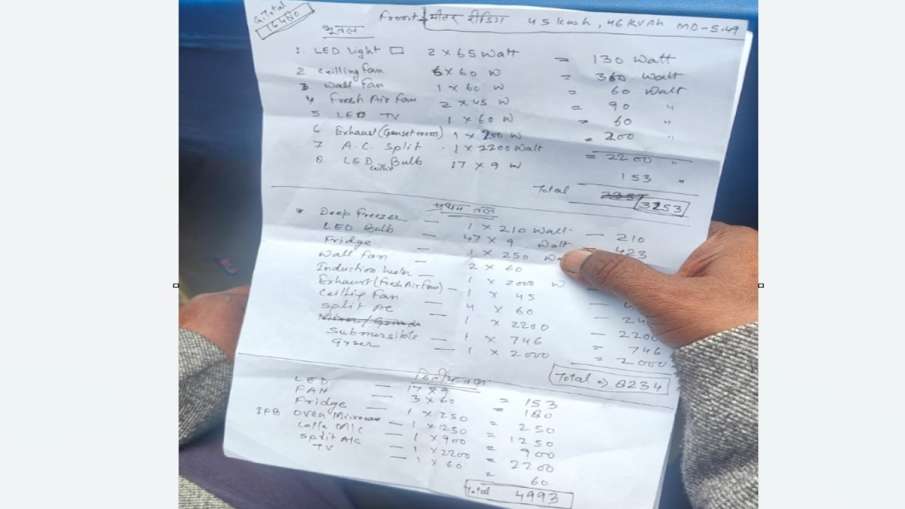 G. Total
16480
Front मीटर रीडिंग 45 kwsh, 46 KVAh MD-5.49
भूतल
1. LED Light 2 x 65 Watt = 130 Watt
2 Ceilling fan 6 x 60 W = 360 Watt
3 Wall Fan 1 x 60 W = 60 Watt
4 Fresh Air Fan 2 x 45 W = 90 "
5 LED TV 1 x 60 W = 60 "
6 Exhaust (Genset room) 1 x 200 W = 200 "
7 A.C. Split 1 x 2200 Watt = 2200 "
8 LED Bulb 17 x 9 W 153 "
Total 3253
प्रथम तल
Deep Freezer — 1 x 210 Watt — 210
LED Bulb — 47 x 9 Watt = 423
Fridge — 1 x 250
Wall Fan — 2 x 60
Induction — 1 x 2000 W
Exhaust (Fresh Air Fan) — 1 x 45
Ceilling Fan — 4 x 60 — 24
Split AC — 1 x 2200 — 2200
Submersible — 1 x 746 = 746
Gyser — 1 x 2000 = 2000
Total => 8234
द्वितीय तल
LED — 17 x 9 = 153
FAN — 3 x 60 = 180
Fridge — 1 x 250 = 250
IFB Oven Microwave — 1 x 1250 = 1250
Coffe M/c — 1 x 900 = 900
Split A/c — 1 x 2200 = 2200
TV — 1 x 60 = 60
Total 4993